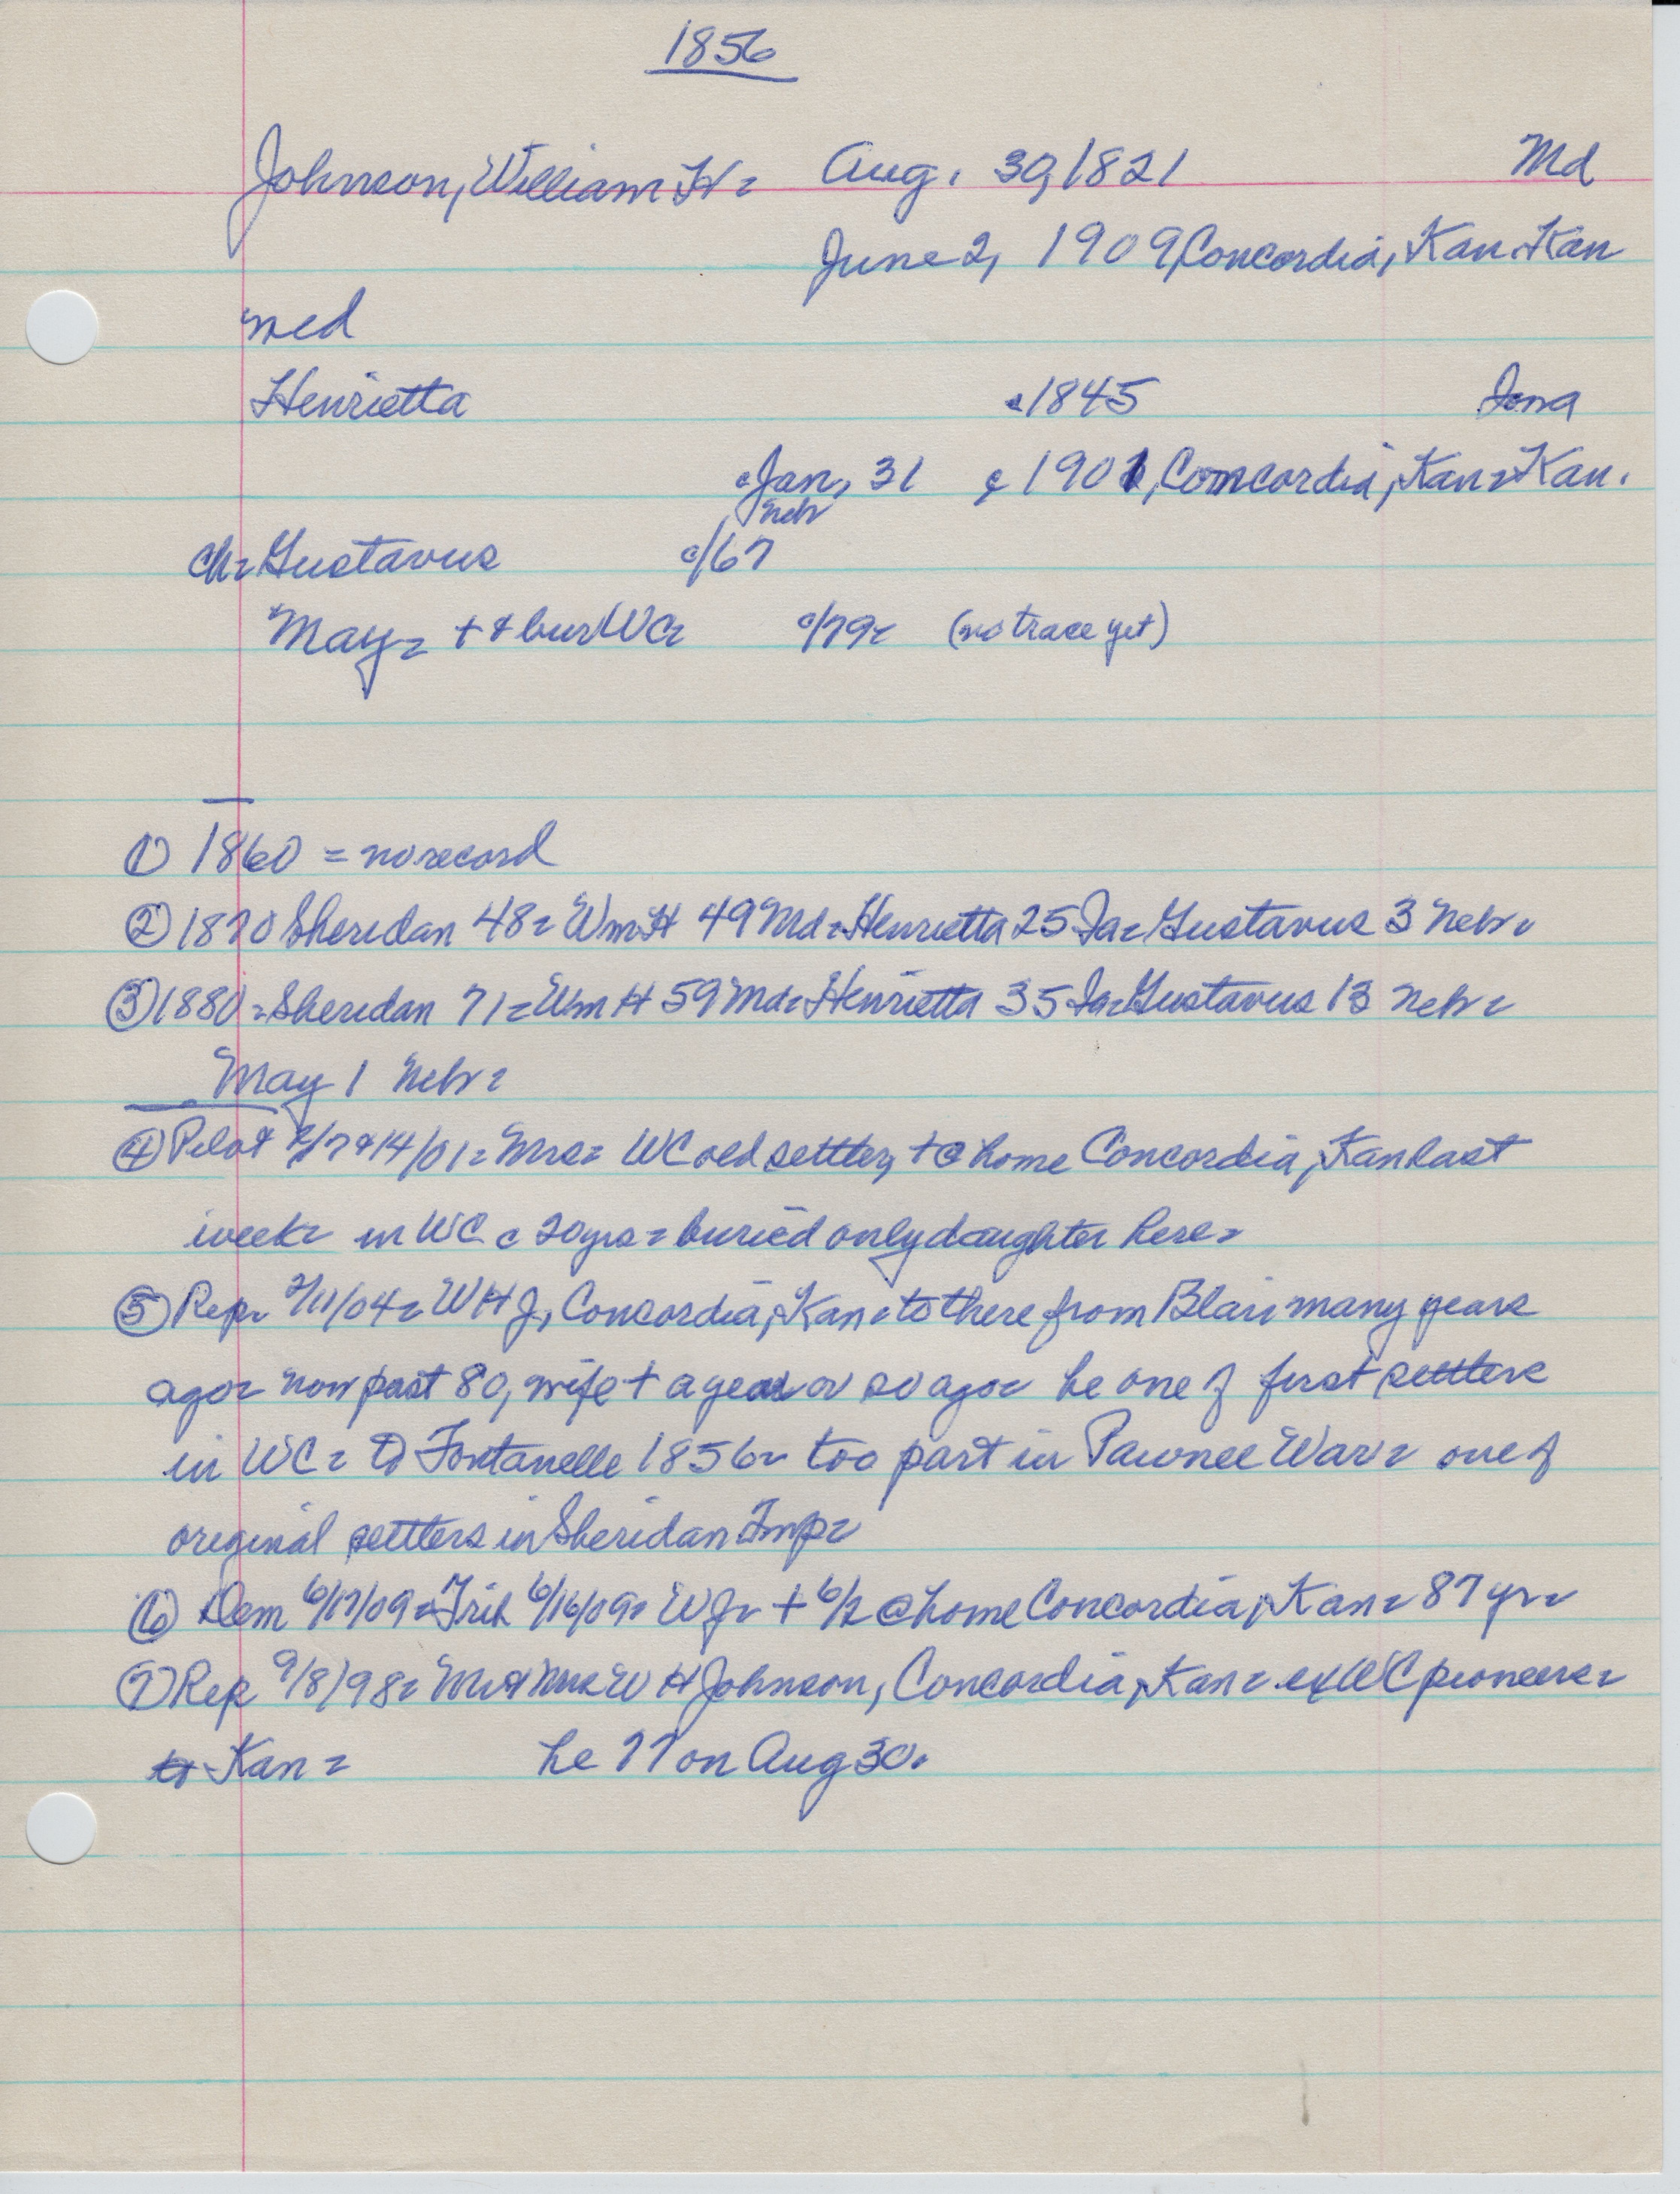 1856
Johnson, William H= Aug. 30, 1821 Md
June 2, 1909, Concordia, Kan. Kan
med
Henrietta c1845 Iowa
cJan, 31 c1901, Concordia, Kan= Kan.
Nebr
ch= Gustavus c/67
May= + & bur WC= c/79= (no trace yet)
① 1860 = no record
② 1870 Sheridan 48= Wm H 49 Md= Henrietta 25 Ia= Gustavus 3 Nebr=
③ 1880= Sheridan 71= Wm H 59 Md= Henrietta 35 Ia= Gustavus 13 Nebr=
May 1 Nebr=
④ Pilot 2/7&14/01= Mrs= WC old settler, + @ home Concordia, Kan last
week= in WC c 20yrs= buried only daughter here=
⑤ Rep= 2/11/04= WHJ, Concordia, Kan= to there from Blair many years
ago= now past 80, wife + a year or so ago= he one of first settlers
in WC= to Fontanelle 1856= too part in Pawnee War= one of
original settlers in Sheridan Tmp=
⑥ Dem 6/17/09= Trib 6/16/09= WJ= + 6/2 @ home Concordia, Kan= 87 yr=
⑦ Rep 9/8/98= Mr & Mrs W H Johnson, Concordia, Kan= ex WC pioneers=
to Kan= he 77 on Aug 30.